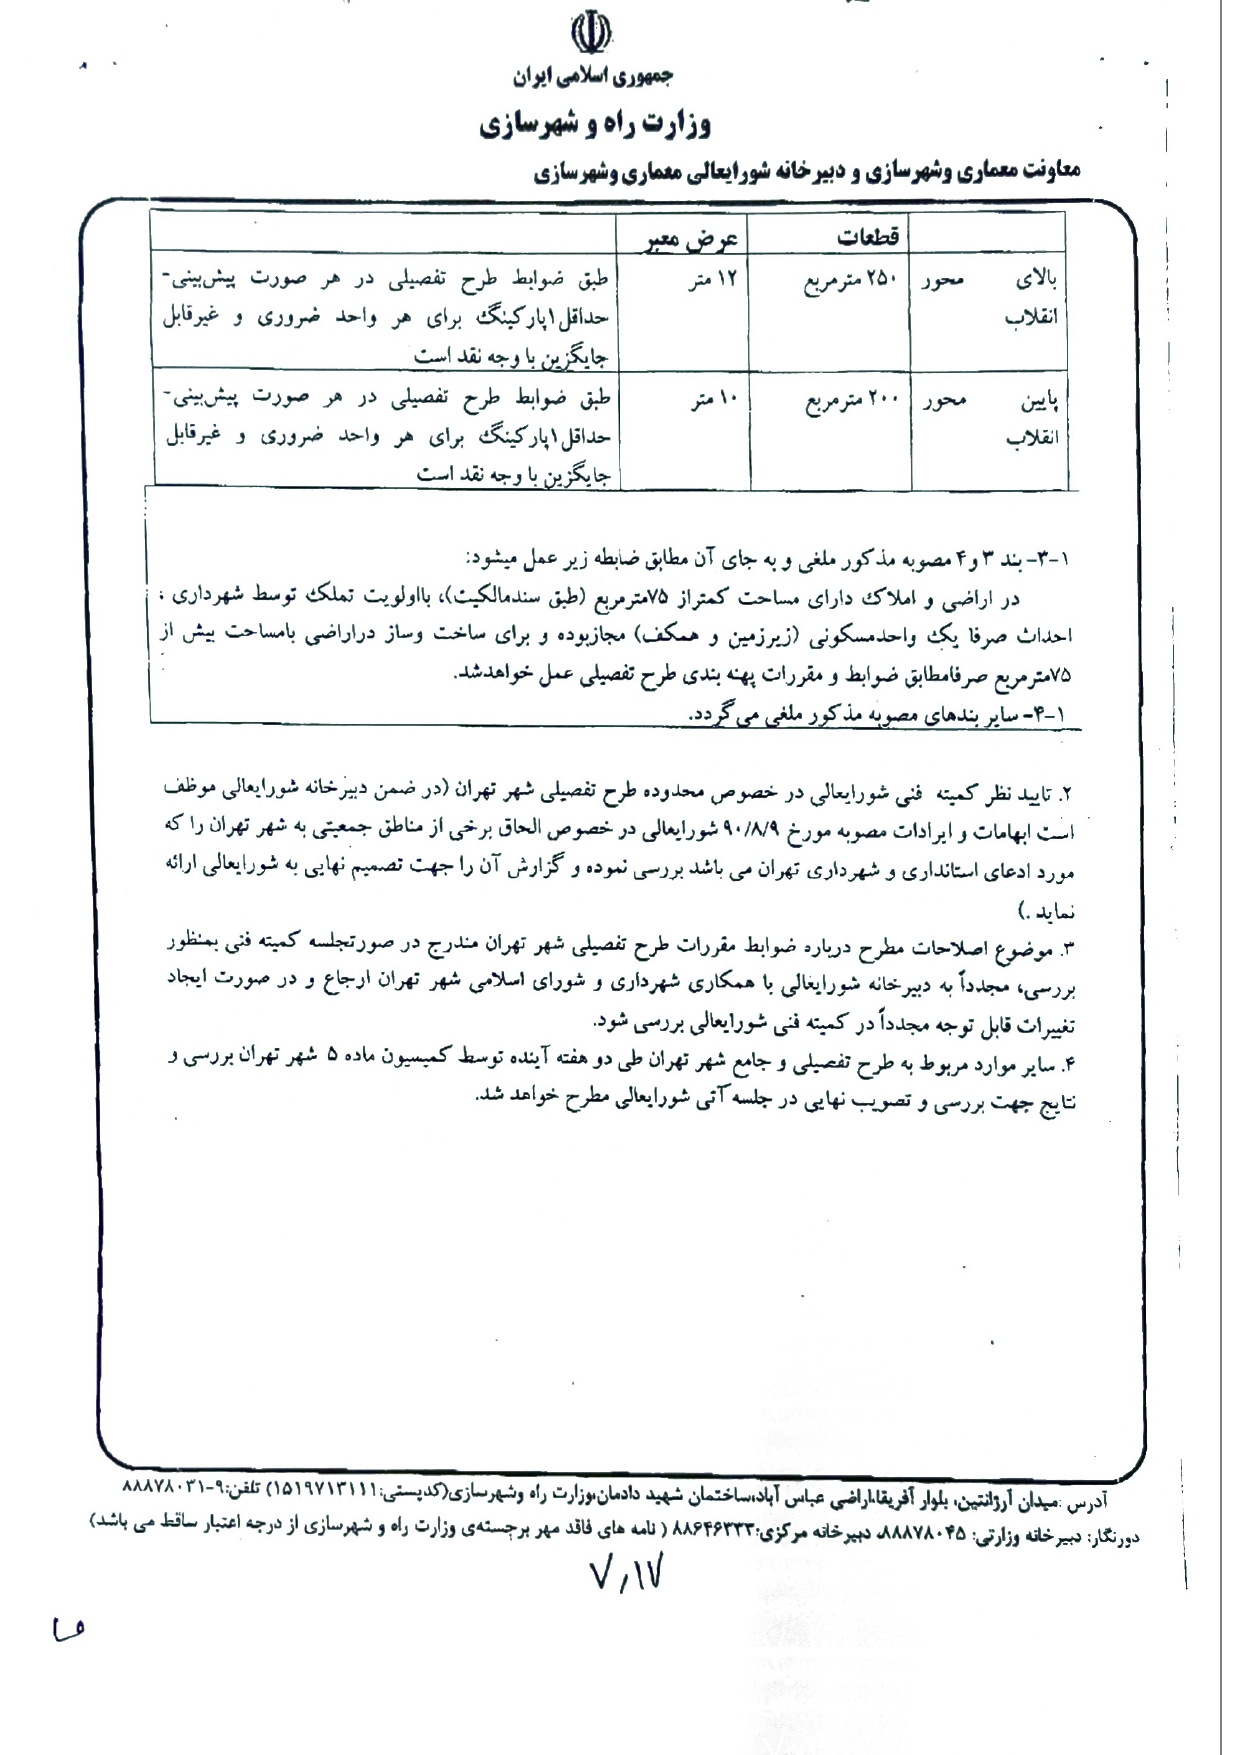 جمهوری اسلامی ایران
وزارت راه و شهرسازی
معاونت معماری وشهرسازی و دبیرخانه شورایعالی معماری وشهرسازی
قطعات عرض معبر
بالای محور ۲۵۰ مترمربع ۱۲ متر طبق ضوابط طرح تفصیلی در هر صورت پیش‌بینی-
انقلاب حداقل۱پارکینگ برای هر واحد ضروری و غیرقابل
جایگزین با وجه نقد است
پایین محور ۲۰۰ مترمربع ۱۰ متر طبق ضوابط طرح تفصیلی در هر صورت پیش‌بینی-
انقلاب حداقل۱پارکینگ برای هر واحد ضروری و غیرقابل
جایگزین با وجه نقد است
۳-۱- بند ۳ و۴ مصوبه مذکور ملغی و به جای آن مطابق ضابطه زیر عمل میشود:
در اراضی و املاک دارای مساحت کمتراز ۷۵مترمربع (طبق سندمالکیت)، بااولویت تملک توسط شهرداری ،
احداث صرفا یک واحدمسکونی (زیرزمین و همکف) مجازبوده و برای ساخت وساز دراراضی بامساحت بیش از
۷۵مترمربع صرفامطابق ضوابط و مقررات پهنه بندی طرح تفصیلی عمل خواهدشد.
۴-۱- سایر بندهای مصوبه مذکور ملغی می‌گردد.
۲. تایید نظر کمیته فنی شورایعالی در خصوص محدوده طرح تفصیلی شهر تهران (در ضمن دبیرخانه شورایعالی موظف
است ابهامات و ایرادات مصوبه مورخ ۹۰/۸/۹ شورایعالی در خصوص الحاق برخی از مناطق جمعیتی به شهر تهران را که
مورد ادعای استانداری و شهرداری تهران می باشد بررسی نموده و گزارش آن را جهت تصمیم نهایی به شورایعالی ارائه
نماید .)
۳. موضوع اصلاحات مطرح درباره ضوابط مقررات طرح تفصیلی شهر تهران مندرج در صورتجلسه کمیته فنی بمنظور
بررسی، مجدداً به دبیرخانه شورایعالی با همکاری شهرداری و شورای اسلامی شهر تهران ارجاع و در صورت ایجاد
تغییرات قابل توجه مجدداً در کمیته فنی شورایعالی بررسی شود.
۴. سایر موارد مربوط به طرح تفصیلی و جامع شهر تهران طی دو هفته آینده توسط کمیسیون ماده ۵ شهر تهران بررسی و
نتایج جهت بررسی و تصویب نهایی در جلسه آتی شورایعالی مطرح خواهد شد.
آدرس :میدان آرژانتین، بلوار آفریقا،اراضی عباس آباد،ساختمان شهید دادمان،وزارت راه وشهرسازی(کدپستی:۱۵۱۹۷۱۳۱۱۱) تلفن:۹-۸۸۸۷۸۰۳۱
دورنگار: دبیرخانه وزارتی: ۸۸۸۷۸۰۴۵، دبیرخانه مرکزی:۸۸۶۴۶۳۳۳ ( نامه های فاقد مهر برجسته‌ی وزارت راه و شهرسازی از درجه اعتبار ساقط می باشد)
۷,۱۷